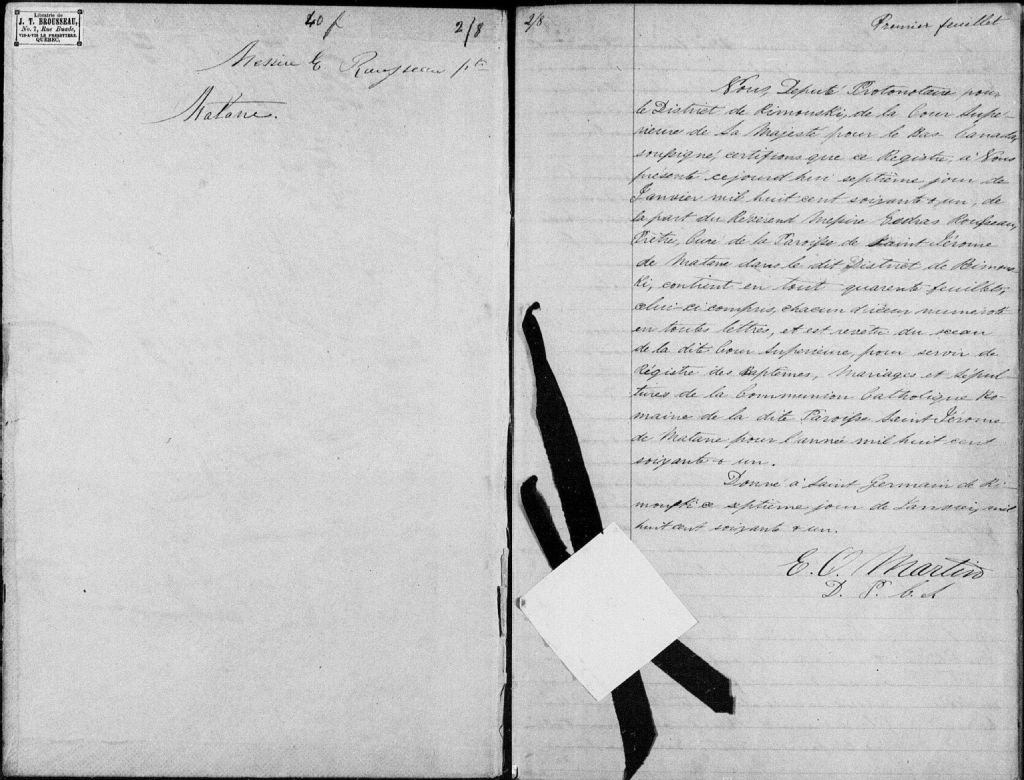 Librairie de
J. T. BROUSSEAU,
No. 7, Rue Buade,
VIS-A-VIS LE PRESBYTERE.
QUEBEC.
40 f
2/8
Messire E Rousseau ptr
Matane.
2/8
Premier feuillet
Nous Deputé Protonotaire, pour
le District de Rimouski, de la Cour Supe-
rieure de Sa Majesté pour le Bas Canada,
soussigné, certifions que ce Registre, à Nous
présenté cejourd'hui septième jour de
Janvier mil huit cent soixante & un, de
la part du Révérend Messire Esdras Rousseau,
Prêtre, Curé de la Paroisse de Saint Jérome
de Matane dans le dit District de Rimous
ki, contient en tout quarente feuillets,
celui-ci compris, chacun d'iceux numeroté
en toutes lettres, et est revetu du sceau
de la dite Cour Superieure, pour servir de
Régistre des Baptêmes, Mariages et Sépul-
tures de la Communion Catholique Ro-
maine de la dite Paroisse Saint Jérome
de Matane pour l'année mil huit cent
soixante & un.
Donné à Saint Germain de Ri-
mouski ce septième jour de Janvier, mil
huit cent soixante & un.
E. O. Martin
D. P. C. S